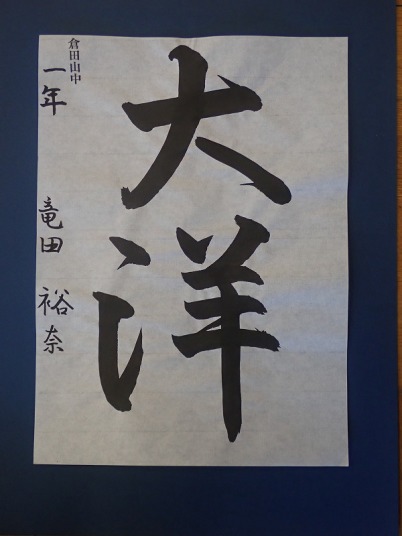 大洋
倉田山中
一年 竜田 裕奈